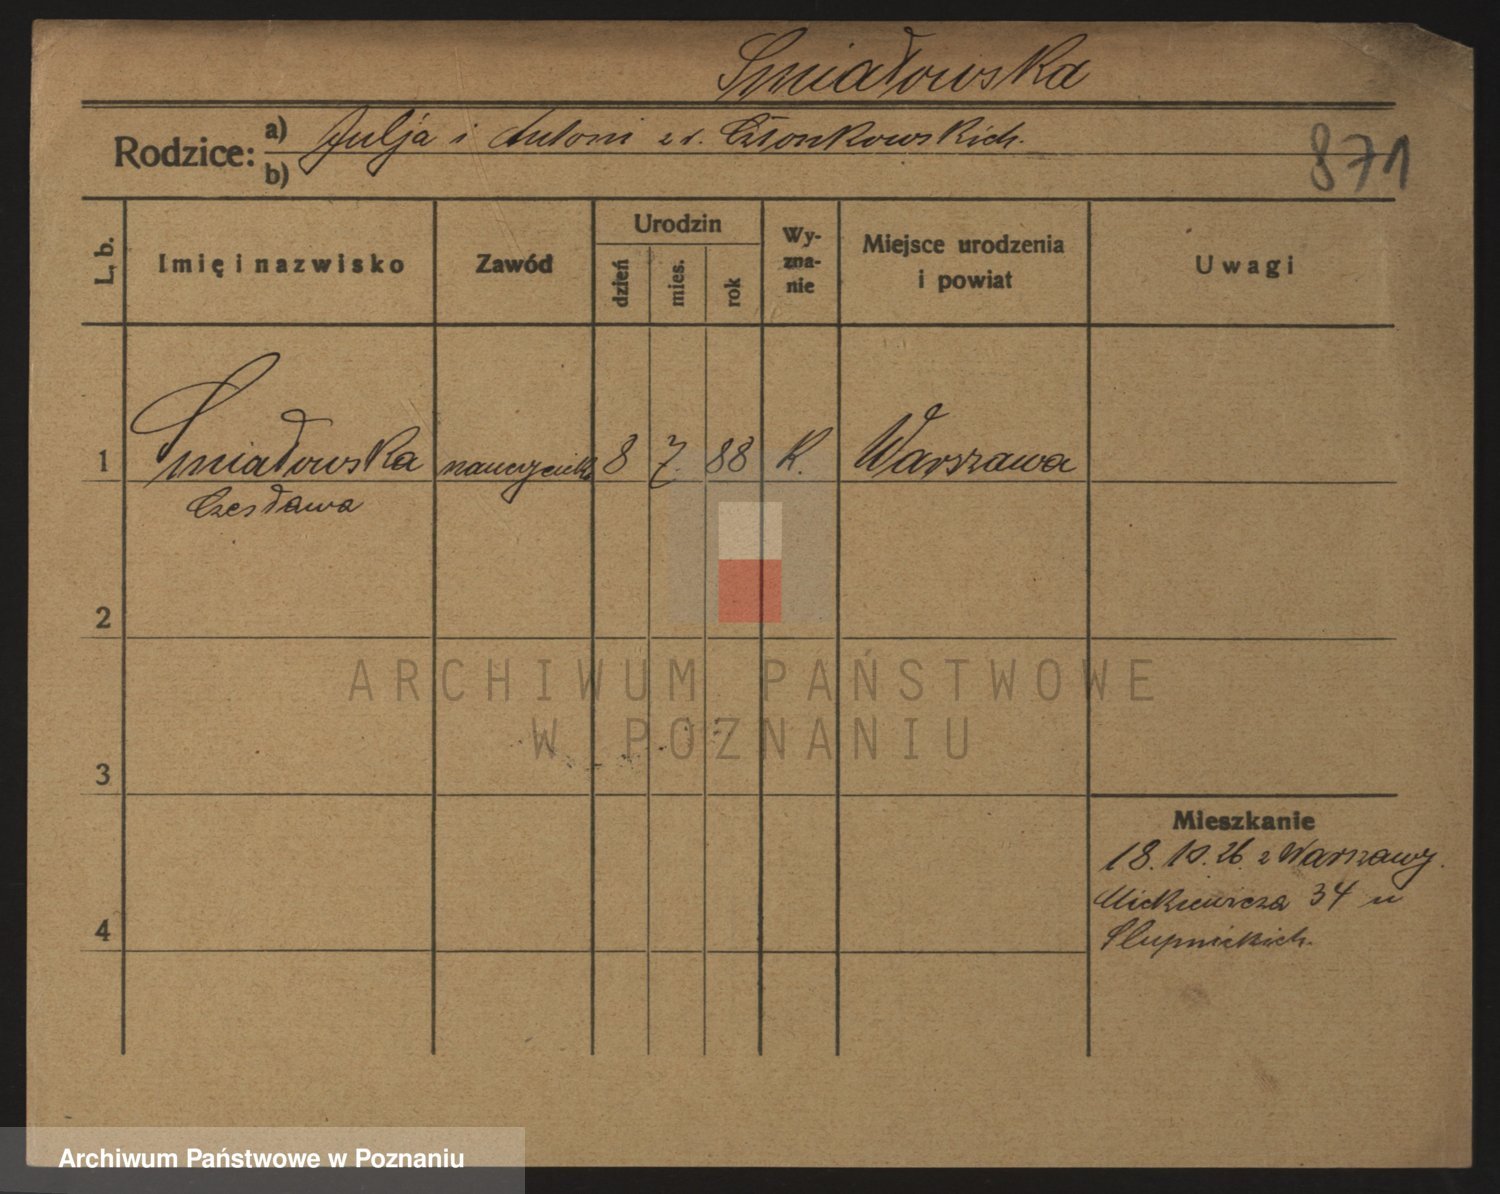 Smiałowska
Rodzice: a) Julja i Antoni z d. Członkowskich.
b)
871
L. b. Imię i nazwisko Zawód Urodzin dzień mies. rok Wy-zna-nie Miejsce urodzenia i powiat Uwagi
1 Smiałowska nauczycielk. 8 7. 88 K. Warszawa
Czesława
2
3
4
Mieszkanie
18. 10. 26. z Warszawy.
Mickiewicza 34 u
Słupnickich.
ARCHIWUM PAŃSTWOWE
W POZNANIU
Archiwum Państwowe w Poznaniu